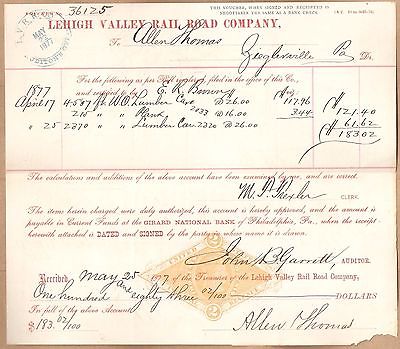 THIS VOUCHER, WHEN SIGNED AND RECEIPTED IS
NEGOTIABLE THE SAME AS A BANK CHECK
36125
LEHIGH VALLEY RAIL ROAD COMPANY,
MAY
1877
To Allen Thomas
Zieglerville Pa Dr.
For the following as per Bill rendered, filed in the office of this Co.,
and receipted to by C. R. Brown
1877
April 17 4587 ft W.O. Lumber Cars @ 26.00 117.96
215 " Plank @ 16.00 3.44 $121.40
" 25 2370 " Lumber Cars 2320 @ 26.00 61.62
$183.02
The calculations and additions of the above account have been examined by me, and are correct.
CLERK.
The items herein charged were duly authorized, this account is hereby approved, and the amount is
payable in Current Funds at the GIRARD NATIONAL BANK of Philadelphia, Pa., when the receipt
herewith attached is DATED and SIGNED by the party in whose name it is drawn.
John B. Garrett AUDITOR.
Received, May 25 1877 of the Treasurer of the Lehigh Valley Rail Road Company,
One hundred and eighty three 02/100 DOLLARS
In full of the above Account
$183 02/100
Allen Thomas